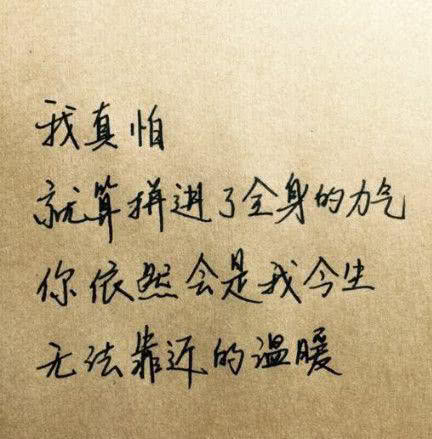 我真怕
就算拼进了全身的力气
你依然会是我今生
无法靠近的温暖